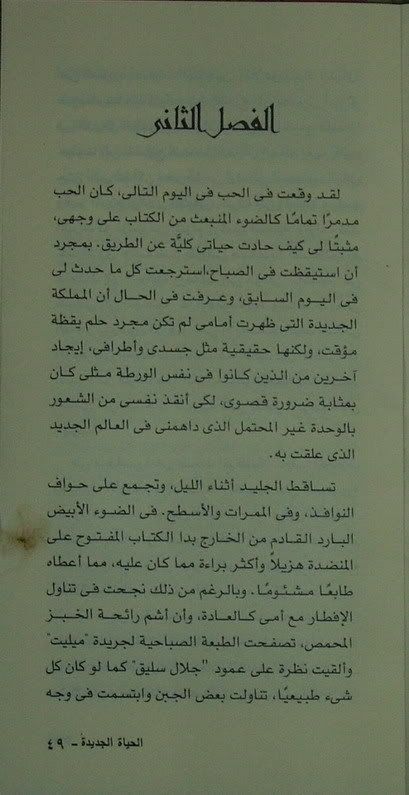 الفصل الثانى
لقد وقعت فى الحب فى اليوم التالى، كان الحب
مدمرًا تمامًا كالضوء المنبعث من الكتاب على وجهى،
مثبتًا لى كيف حادت حياتى كليَّة عن الطريق. بمجرد
أن استيقظت فى الصباح،استرجعت كل ما حدث لى
فى اليوم السابق، وعرفت فى الحال أن المملكة
الجديدة التى ظهرت أمامى لم تكن مجرد حلم يقظة
مؤقت، ولكنها حقيقية مثل جسدى وأطرافى، إيجاد
آخرين من الذين كانوا فى نفس الورطة مثلى كان
بمثابة ضرورة قصوى، لكى أنقذ نفسى من الشعور
بالوحدة غير المحتمل الذى داهمنى فى العالم الجديد
الذى علقت به.
تساقط الجليد أثناء الليل، وتجمع على حواف
النوافذ، وفى الممرات والأسطح. فى الضوء الأبيض
البارد القادم من الخارج بدا الكتاب المفتوح على
المنضدة هزيلاً وأكثر براءة مما كان عليه، مما أعطاه
طابعًا مشئومًا. وبالرغم من ذلك نجحت فى تناول
الإفطار مع أمى كالعادة، وأن أشم رائحة الخبز
المحمص، تصفحت الطبعة الصباحية لجريدة "ميليت"
وألقيت نظرة على عمود "جلال سليق" كما لو كان كل
شىء طبيعيًا، تناولت بعض الجبن وابتسمت فى وجه
الحياة الجديدة - ٤٩